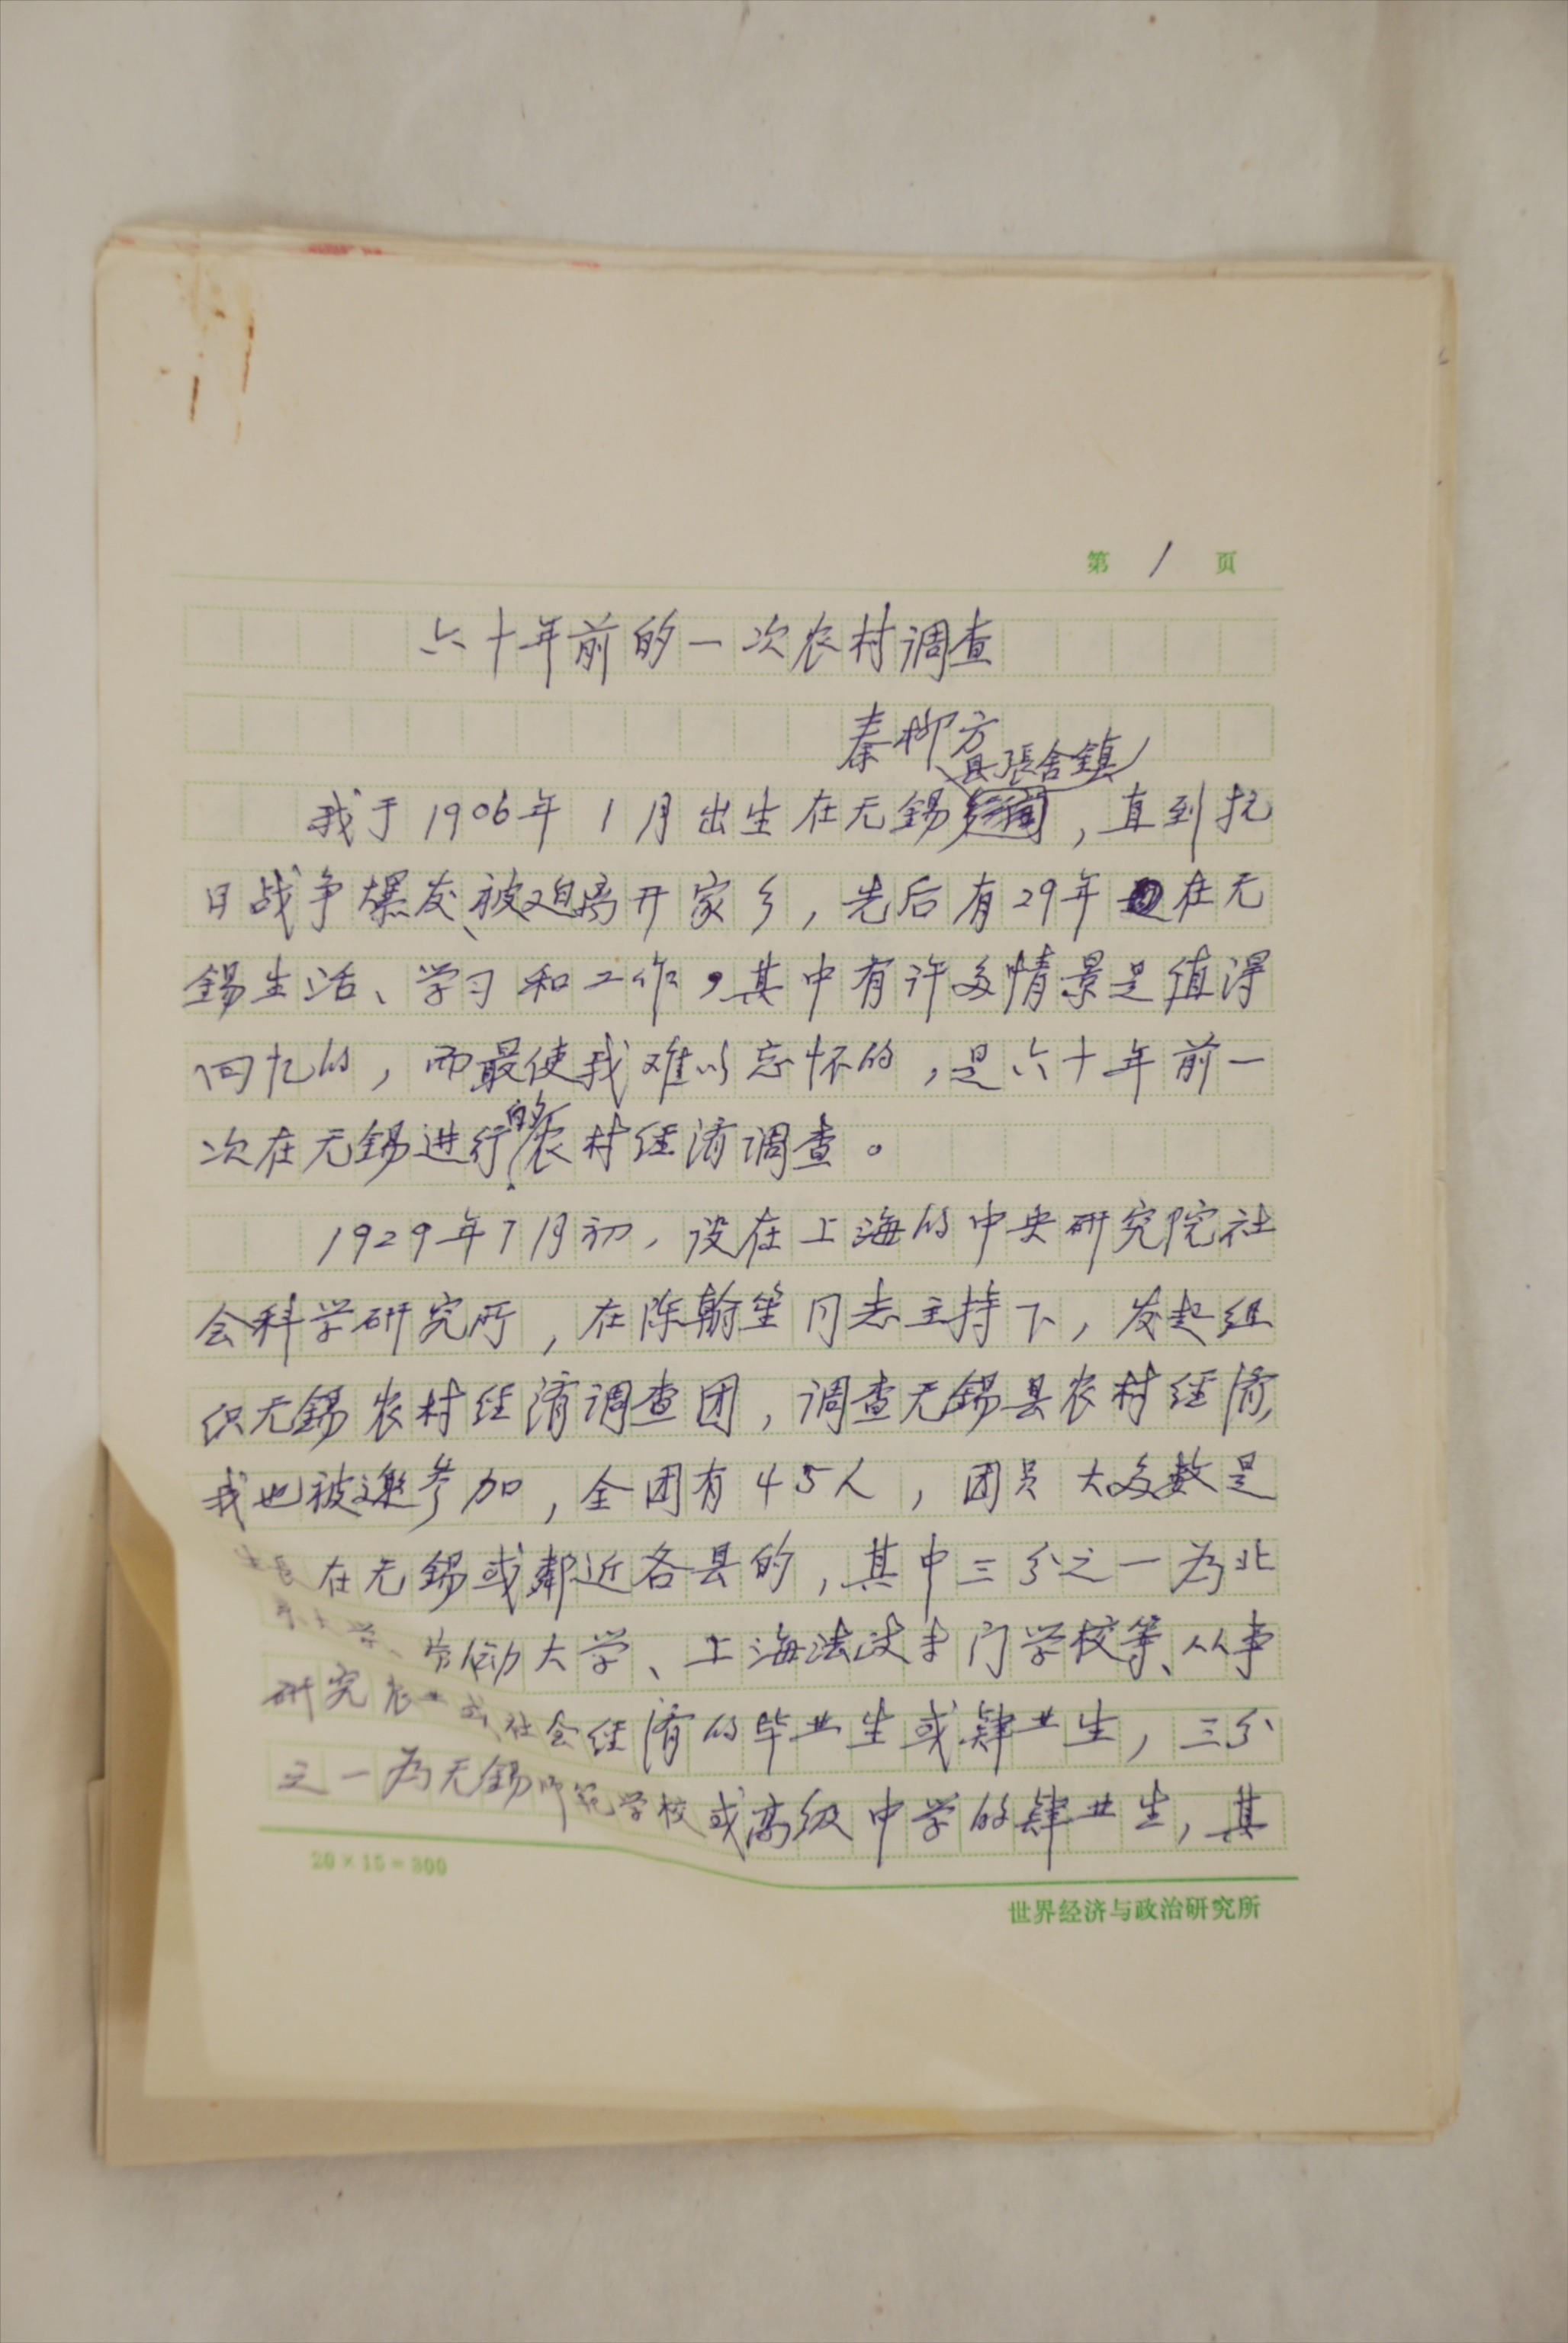 第 1 页
六十年前的一次农村调查
秦柳方
县张舍镇
我于1906年1月出生在无锡,直到抗
日战争爆发、被迫离开家乡,先后有29年在无
锡生活、学习和工作,其中有许多情景是值得
回忆的,而最使我难以忘怀的,是六十年前一
次在无锡进行的农村经济调查。
1929年7月初,设在上海的中央研究院社
会科学研究所,在陈翰笙同志主持下,发起组
织无锡农村经济调查团,调查无锡县农村经济,
我也被邀参加,全团有45人,团员大多数是
生长在无锡或邻近各县的,其中三分之一为北
京大学、劳动大学、上海法政专门学校等、从事
研究农业或社会经济的毕业生或肄业生,三分
之一为无锡师范学校或高级中学的肄业生,其
20×15=300
世界经济与政治研究所